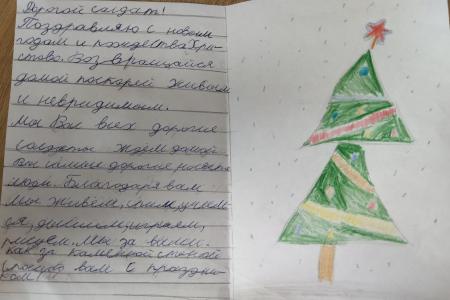 Дорогой солдат!
Поздравляю с новым
годом и рождества Хри-
стово. Возвращайся
домой поскорей живым
и невридимым.
Мы Вас всех дорогие
солдаты ждём домой
Вы самые дорогие
люди. Благодаря вам
мы живём, спим, учим-
ся, дышим, играем,
рисуем. Мы за вами
как за каменной стеной
вам с праздни-
ком!